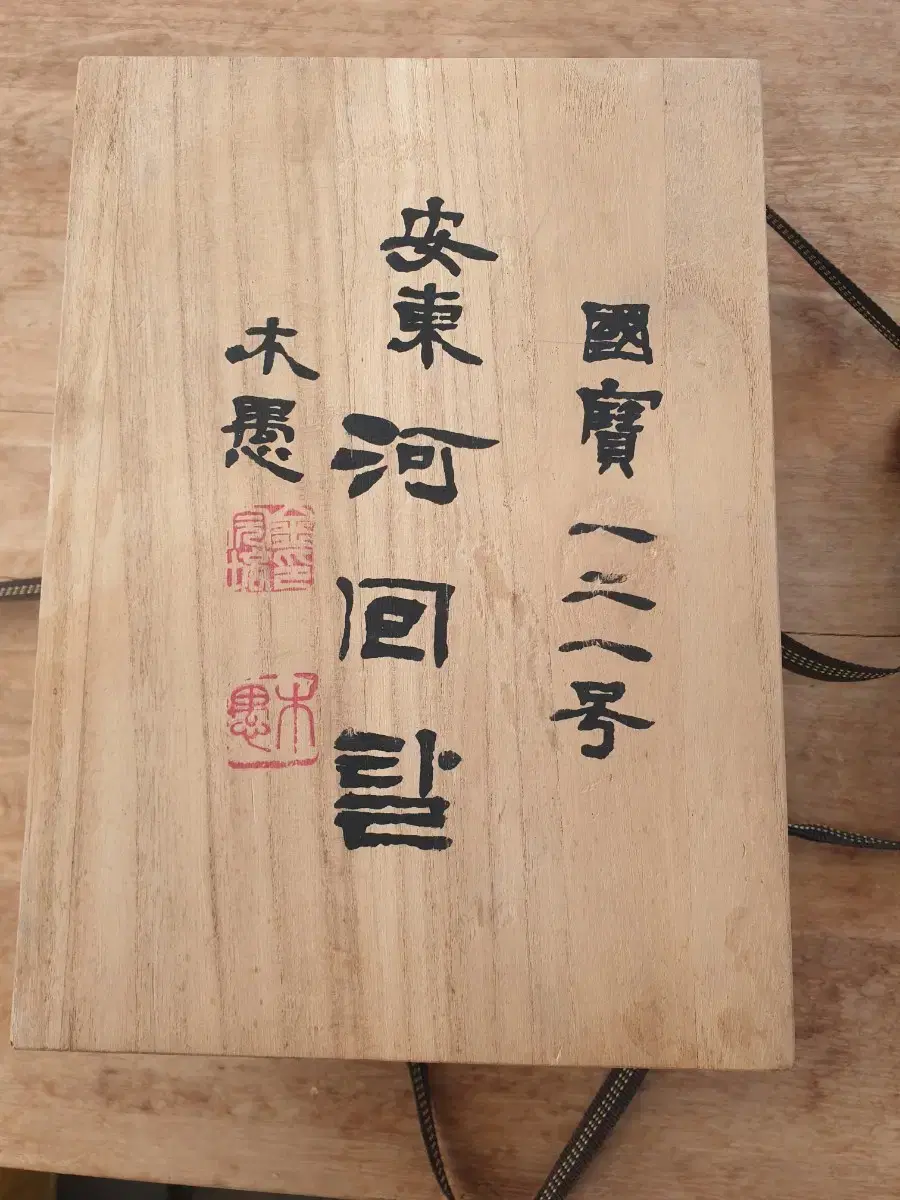 國寶一二一号
安東
河回탈
木愚
木愚